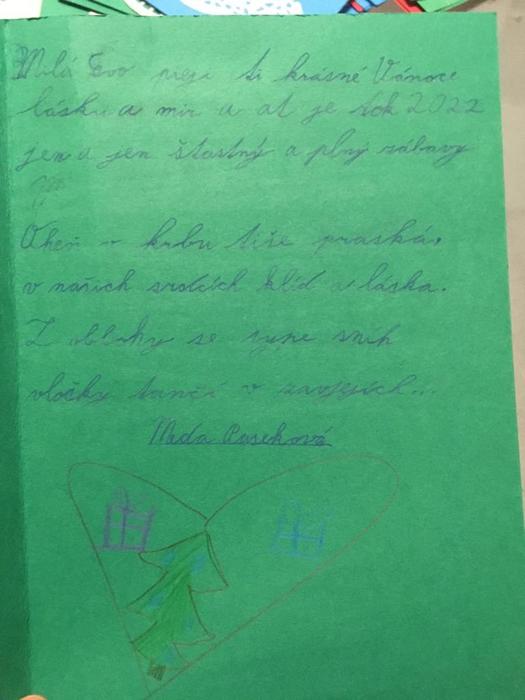 Milá Evo přeji ti krásné Vánoce
lásku a mír a at je rok 2022
jen a jen štastný a plný zábavy
Oheň v krbu tiše praská,
v našich srdcích klid a láska.
Z oblohy se sype sníh
vločky tančí v závějích...
Paseková